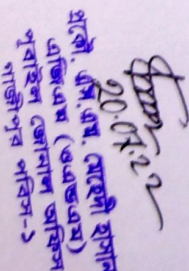 20.07.22
প্রকৌ. এস.এম. মেহেদী হাসান
এজিএম (ওএন্ডএম)
পূবাইল জোনাল অফিস
গাজীপুর পবিস-১